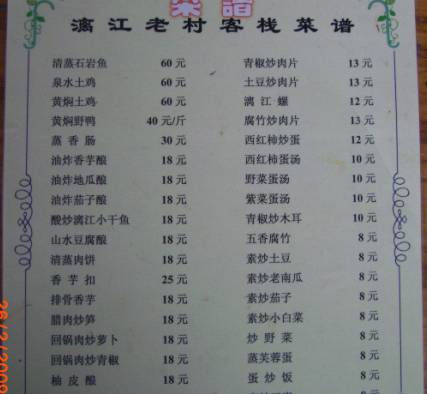 菜谱
漓江老村客栈菜谱
清蒸石岩鱼 60元
泉水土鸡 60元
黄焖土鸡 60元
黄焖野鸭 40元/斤
蒸香肠 30元
油炸香芋酿 18元
油炸地瓜酿 18元
油炸茄子酿 18元
酸炒漓江小干鱼 18元
山水豆腐酿 18元
清蒸肉饼 18元
香芋扣 25元
排骨香芋 18元
腊肉炒笋 18元
回锅肉炒萝卜 18元
回锅肉炒青椒 18元
柚皮酿 18元
青椒炒肉片 13元
土豆炒肉片 13元
漓江螺 12元
腐竹炒肉片 13元
西红柿炒蛋 12元
西红柿蛋汤 10元
野菜蛋汤 10元
紫菜蛋汤 10元
青椒炒木耳 10元
五香腐竹 8元
素炒土豆 8元
素炒老南瓜 8元
素炒茄子 8元
素炒小白菜 8元
炒野菜 8元
蒸芙蓉蛋 8元
蛋炒饭 8元